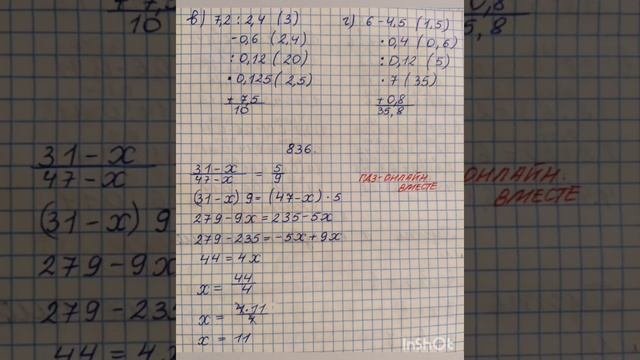 в) 7,2 : 2,4 (3)
-0,6 (2,4)
: 0,12 (20)
· 0,125 (2,5)
+ 7,5
10
г) 6 - 4,5 (1,5)
· 0,4 (0,6)
: 0,12 (5)
· 7 (35)
+ 0,8
35,8
836.
31-x / 47-x = 5/9
(31-x) 9 = (47-x) · 5
279 - 9x = 235 - 5x
279 - 235 = -5x + 9x
44 = 4x
x = 44/4
x = 4·11/4
x = 11
ГДЗ-ОНЛАЙН.
ВМЕСТЕ
InShOt
10
31-x
47-x
(31-x) 9
279-9x
279-235
44 = 4x
35,8
ОНЛАЙН.
ВМЕСТЕ